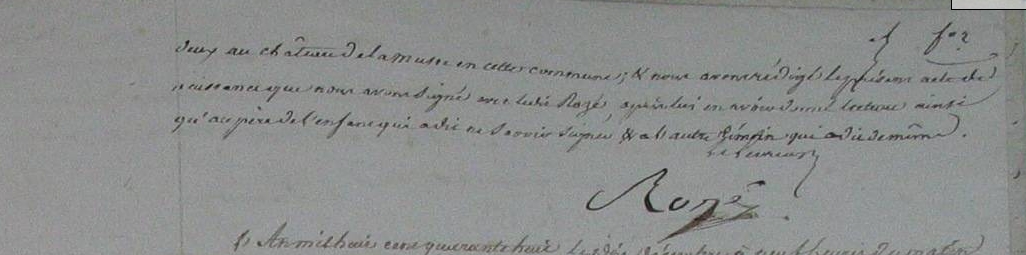 f° 2
deux au château de la musse en cette commune ; & nous avons rédigé le présent acte de
naissance que nous avons signé avec ledit Rozé après lui en avoir donné lecture ainsi
qu'au père de l'enfant qui a dit ne savoir signer & a l'autre témoin qui a dit de même.
Rozé
An mil huit cent quarante huit le dix Décembre à neuf heures du matin